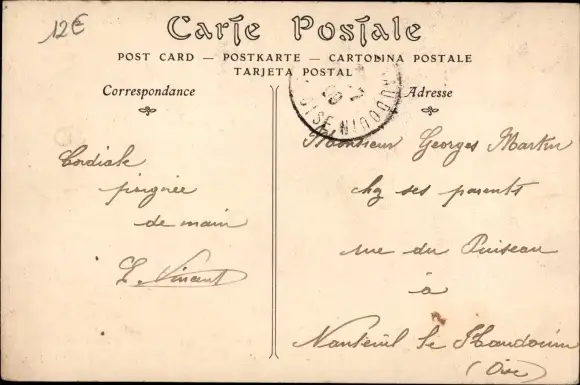 12€
Carte Postale
POST CARD — POSTKARTE — CARTOLINA POSTALE
TARJETA POSTAL
Correspondance
Adresse
Cordiale
poignée
de main
L. Vincent
Monsieur Georges Martin
chez ses parents
rue du Puiseau
à
Nanteuil le Haudouin
(Oise)
OISE